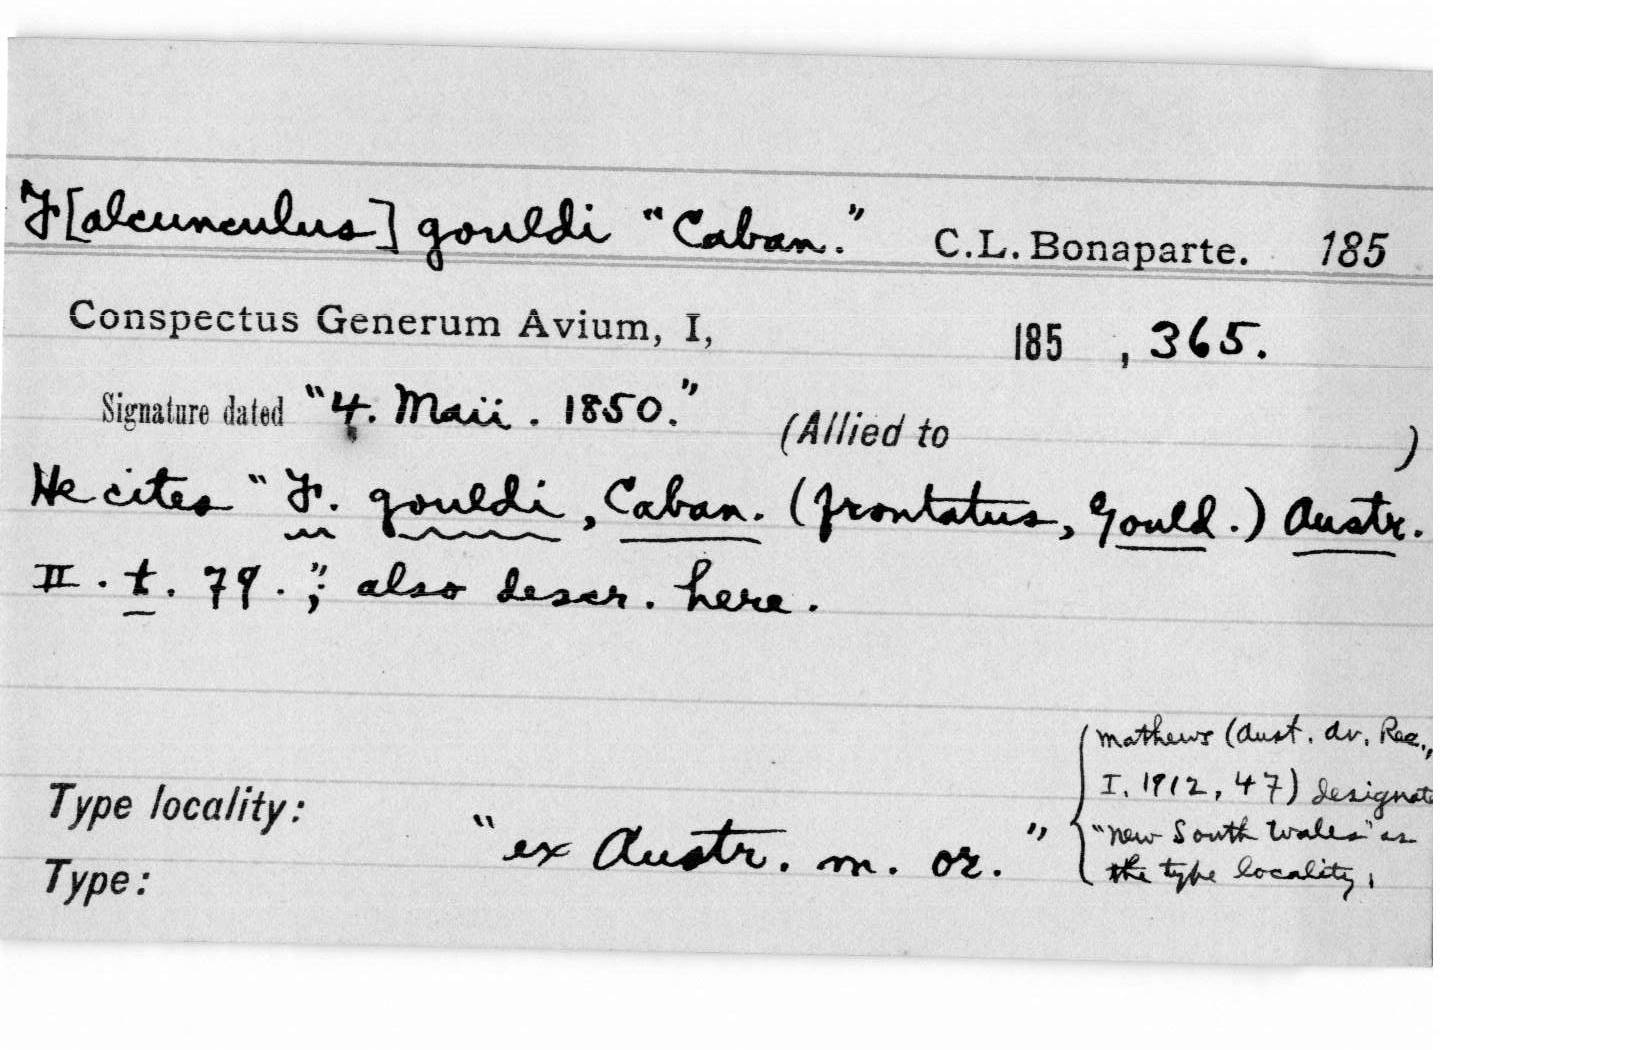 F[alcunculus] gouldi "Caban." C.L. Bonaparte. 185
Conspectus Generum Avium, I, 185 , 365.
Signature dated "4. Maii. 1850." (Allied to )
He cites "F. gouldi, Caban. (frontatus, Gould.) Austr.
II. t. 79."; also descr. here.
Mathews (Aust. Av. Rec.,
I, 1912, 47) designate
"New South Wales" as
the type locality.
Type locality:
"ex Austr. m. or."
Type: